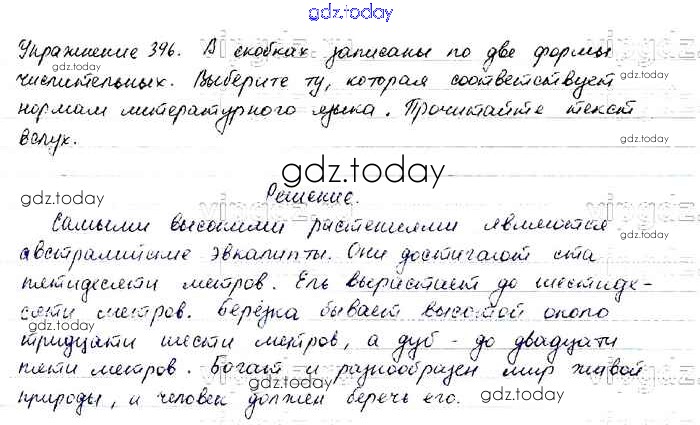 gdz.today
Упражнение 396. В скобках записаны по две формы
числительных. Выберите ту, которая соответствует
gdz.today
gdz.today
нормам литературного языка. Прочитайте текст
вслух.
gdz.today
gdz.today
gdz.today
Решение.
Самыми высокими растениями являются
австралийские эвкалипты. Они достигают ста
gdz.today
пятидесяти метров. Ель вырастает до шестиде-
сяти метров. Берёзка бывает высотой около
gdz.today
тридцати шести метров, а дуб - до двадцати
пяти метров. Богат и разнообразен мир живой
gdz.today
природы, и человек должен беречь его.
gdz.today